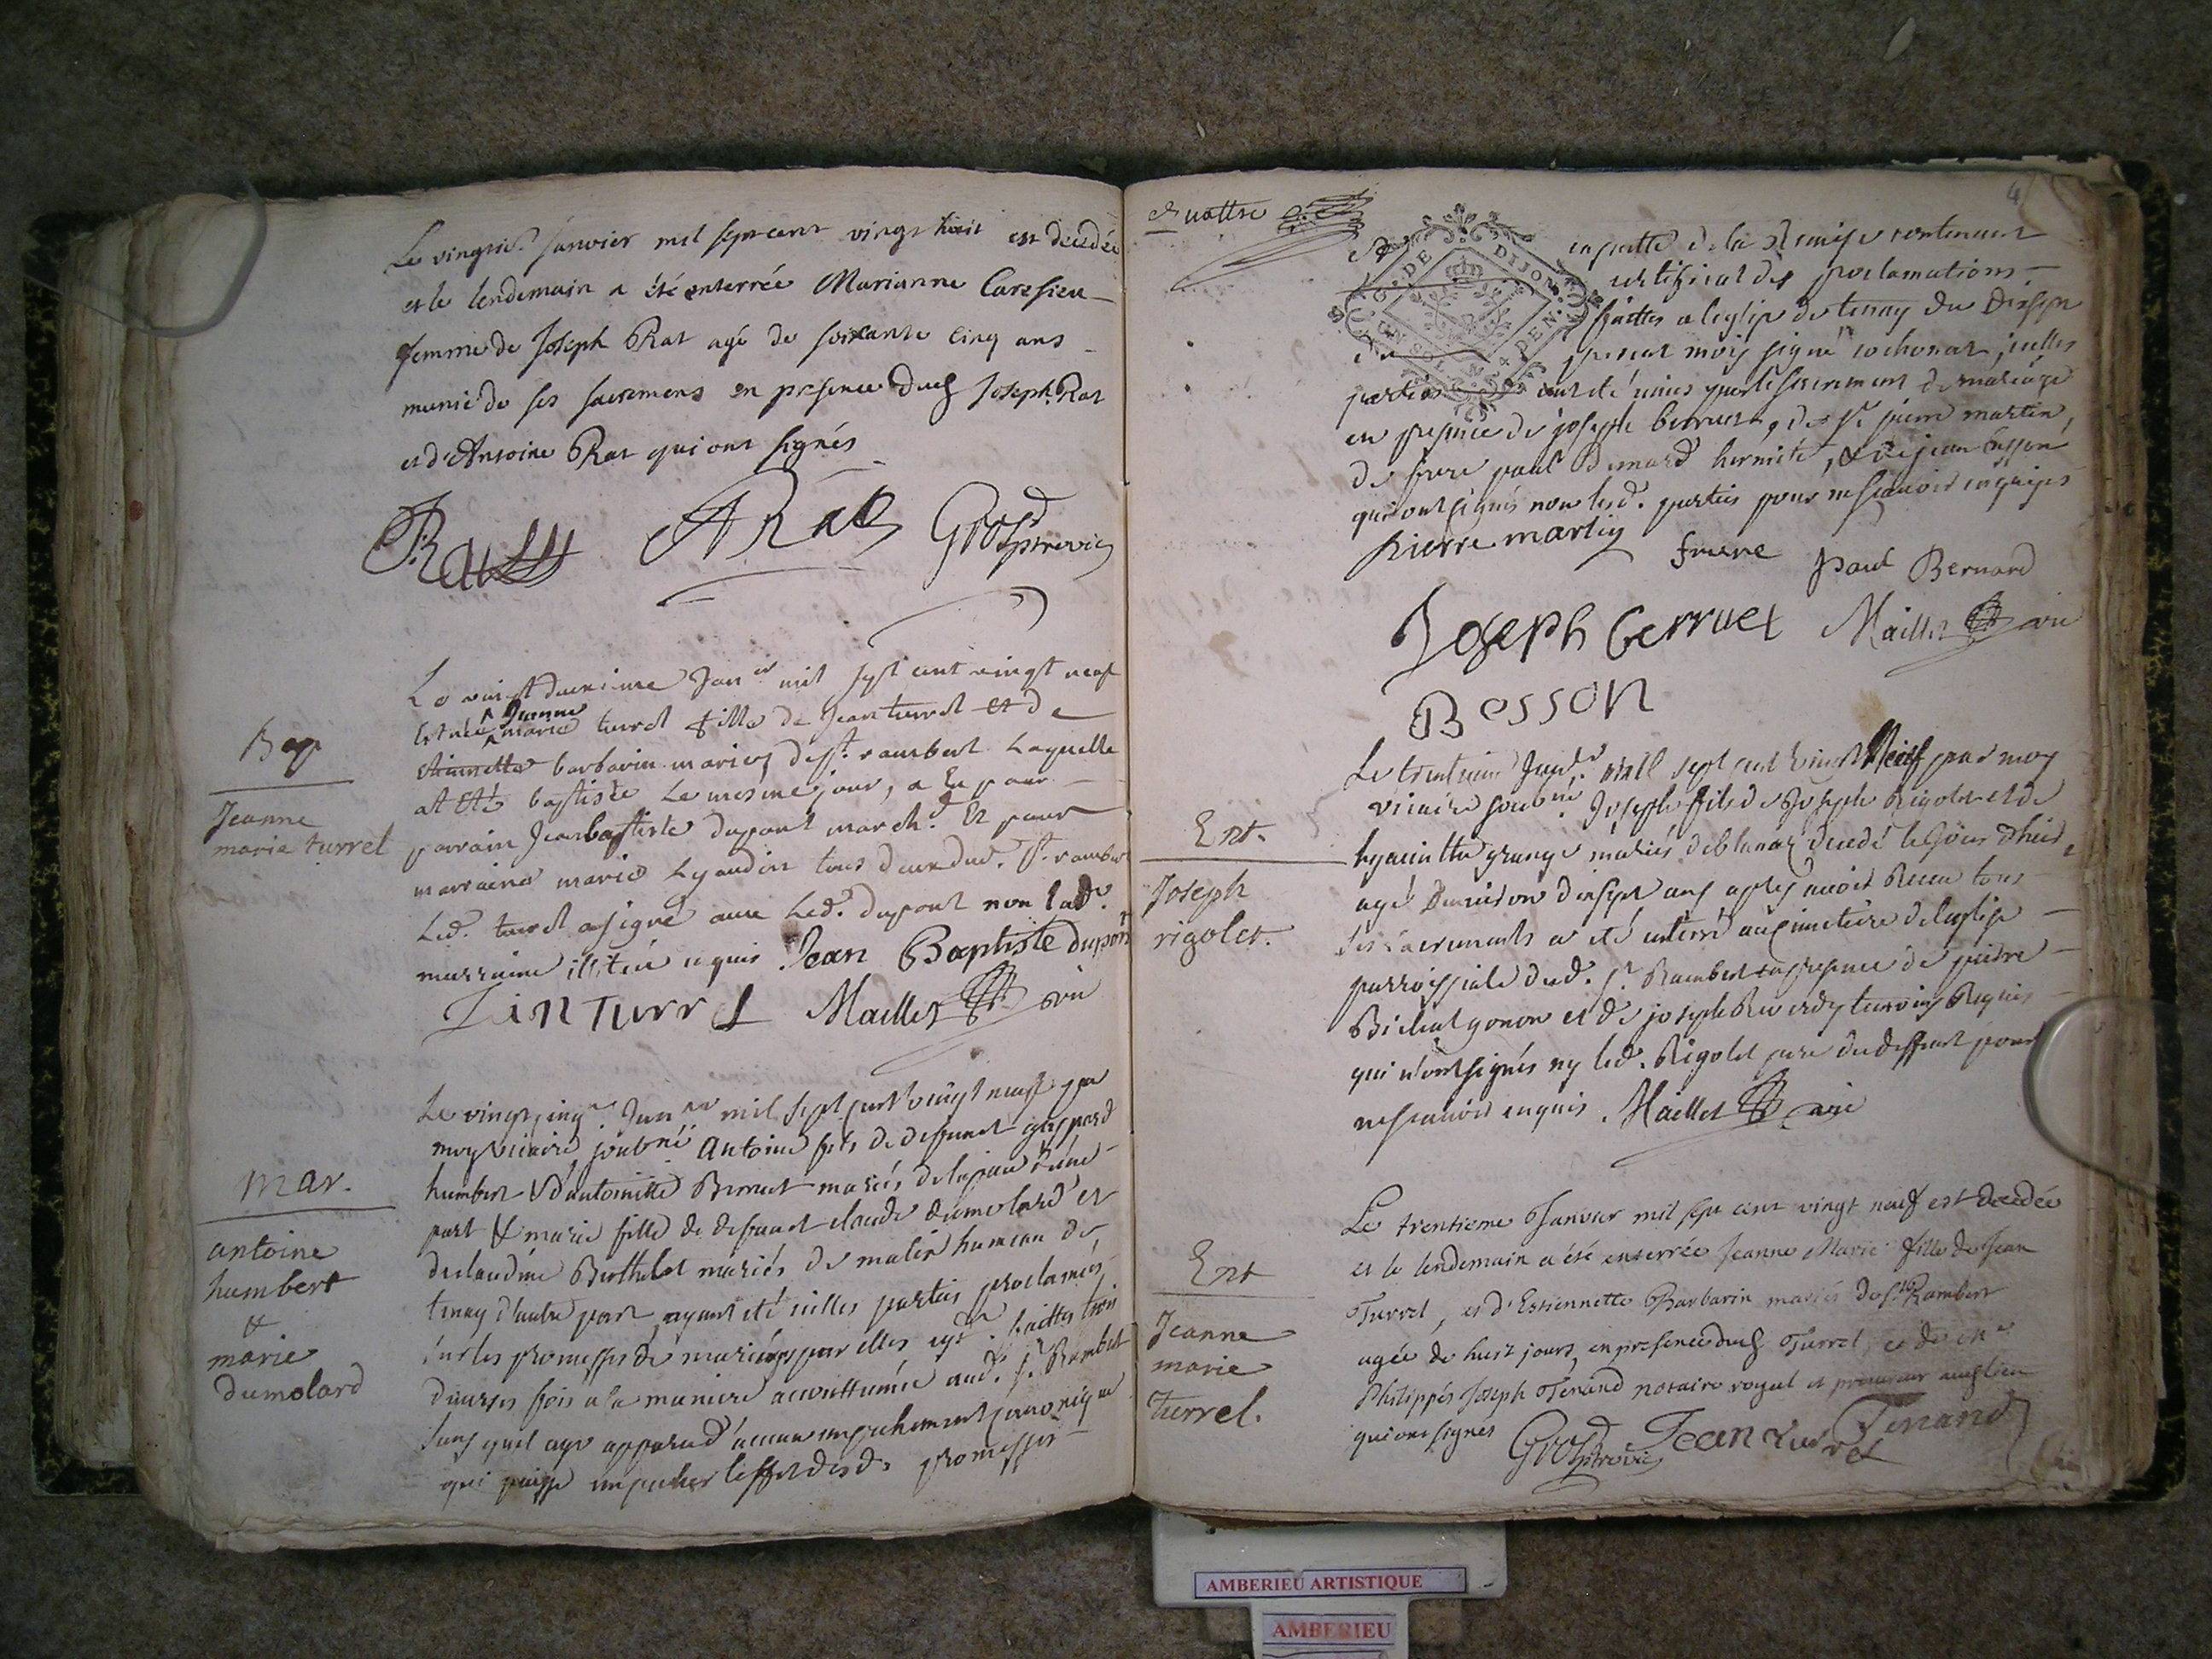 Le vingtie janvier mil sept cent vingt huit est decedée
et le lendemain a été enterrée Marianne Caresieu
femme de Joseph Rat agé de soixante cinq ans
munie de ses sacremens en presence dud Joseph Rat
et d'Antoine Rat qui ont signés
ARat Grosp
Bap
Jeanne
marie turrel
Le vingt deuxieme Janer mil sept cent vingt neuf
Est née Jeanne marie turrel fille de Jean turrel et de
barbarin mariez de st. rambert Laquelle
at Eté baptisée Le mesme jour, a Eu pour
parrain Jean baptiste dupont march.d Et pour
marraine marie Lyaudin tous deux dud. st. rambert
Led. turrel a signé avec Led. dupont non lad.
marraine illiteré enquis Jean Baptiste dupont
Jan Turrel Maillet vic
mar.
antoine
humbert
&
marie
dumolard
Le vingt cinq Janer mil sept cent vingt neuf par
moy vicaire soubné Antoine fils de deffunct gaspard
humbert & d'antoinette mariés de d'une
part & marie fille de deffunct claude dumolard et
de claudine Berthelot mariés de malix hameau de
tenay d'autre part, ayant été icelles parties proclamés
sur les promesses de mariage par elles faittes trois
diverses fois a la maniere accouttumée aud. st. Rambert
sans quil aye apparu d'aucun empechement canonique
qui puisse empecher l'effet desd. promesses
quattre
4
G. DE DIJON
UN SOL 4 DEN.
en suitte de la Remise contenant
certificat des proclamations
faittes a l'eglise de tenay du
present mois signé cochonat, icelles
parties ont été unies par le sacrement de mariage
en presence de joseph berruet, de Sr pierre martin,
de frere paul Bernard hermite, & de jean besson
qui ont signés non lesd. parties pour ne scavoir enquises
pierre martin frere Paul Bernard
Joseph berruet Maillet vic
Besson
Ent.
Joseph
rigolet.
Le trentieme Janer. mill sept cent vingt Neuf par moy
vicaire soubné. Joseph fils de Joseph Rigolet et de
hyacinthe grange mariés de blanaz decedé le jour d'hier
agé Denviron dixsept ans apres avoir Receu tous
ses sacrements a eté enterré au cimetiere de l'eglise
parroissiale dud. St. Rambert en presence de pierre
Bichat gonon et de joseph Reverdy temoins Requis
qui n'ont signés ny led. Rigolet pere du deffunt pour
ne scavoir enquis. Maillet vic
Ent
Jeanne
marie
Turrel.
Le trentieme Janvier mil sept cent vingt neuf est decedée
et le lendemain a été enterrée Jeanne Marie fille de Jean
Turrel, et d'Estiennette Barbarin mariés de St Rambert
agée de huit jours, en presence dud Turrel, et de me
Philippes Joseph Tenand notaire royal et procureur aud lieu
qui ont signés Grosp Jean turrel Tenand
AMBERIEU ARTISTIQUE
AMBERIEU